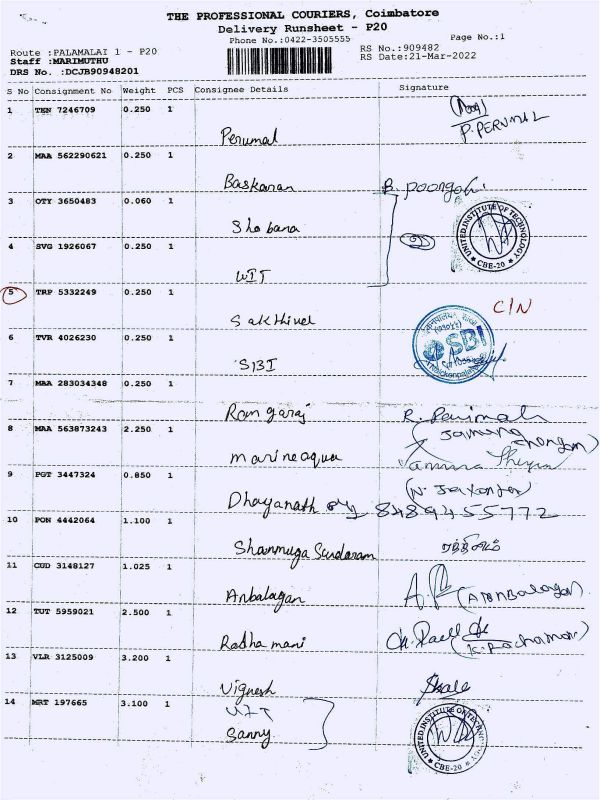 THE PROFESSIONAL COURIERS, Coimbatore
Delivery Runsheet - P20
Phone No.:0422-3505555
Page No.:1
Route :PALAMALAI 1 - P20
RS No.:909482
Staff :MARIMUTHU
RS Date:21-Mar-2022
DRS No. :DCJB90948201
S No Consignment No Weight PCS Consignee Details Signature
1 TEN 7246709 0.250 1
Perumal P. PERUMAL
2 MAA 562290621 0.250 1
Baskaran B. Poongodi
3 OTY 3650483 0.060 1
Shobana
UNITED INSTITUTE OF TECHNOLOGY
CBE-20
4 SVG 1926067 0.250 1
UIT
5 TRP 5332249 0.250 1 C/N
Sakthivel
6 TVR 4026230 0.250 1
SBI
SBI
7 MAA 283034348 0.250 1
Ramgaraj R.
8 MAA 563873243 2.250 1
marineaqua
9 PGT 3447324 0.850 1
Dhayanath 8489455772
10 PON 4442064 1.100 1
Shanmuga Sundaram
11 CUD 3148127 1.025 1
Anbalagan
12 TUT 5959021 2.500 1
Radhamani
13 VLR 3125009 3.200 1
Vignesh
14 MRT 197665 3.100 1
UIT
Sanny
UNITED INSTITUTE OF TECHNOLOGY
CBE-20